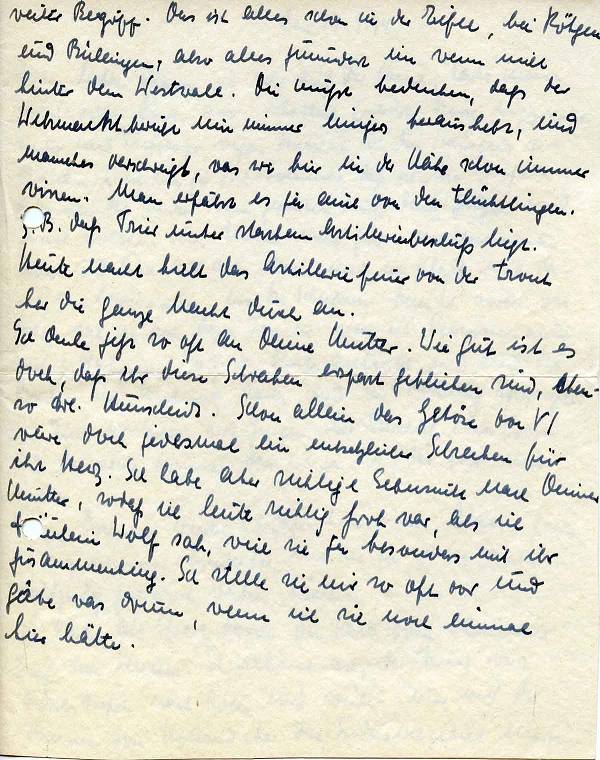 weiter Begriff. Das ist alles schon in der Eifel, bei Rötgen
und Büllingen, also alles zumindest ein wenig
hinter dem Westwall. Du mußt bedenken, daß der
Wehrmachtbericht nur immer einiges heraushebt, und
manches verschweigt, was wir hier in der Nähe schon immer
wissen. Man erfährt es ja auch von den Flüchtlingen.
z.B. daß Trier unter starkem Artilleriebeschuß liegt.
Heute Nacht hielt das Artilleriefeuer von der Front
her die ganze Nacht durch an.
Ich denke jetzt so oft an Deine Mutter. Wie gut ist es
doch, daß ihr diese Schrecken erspart geblieben sind, eben-
so Dr. . Schon allein das Getöse von V1
wäre doch jedesmal ein entsetzlicher Schrecken für
ihr Herz. Ich habe aber richtige Sehnsucht nach Deiner
Mutter, sodaß ich heute richtig froh war, als ich
Fräulein Wolf sah, weil sie ja besonders mit ihr
zusammenhing. Ich stelle sie mir so oft vor und
gäbe was drum, wenn ich sie noch einmal
hier hätte.